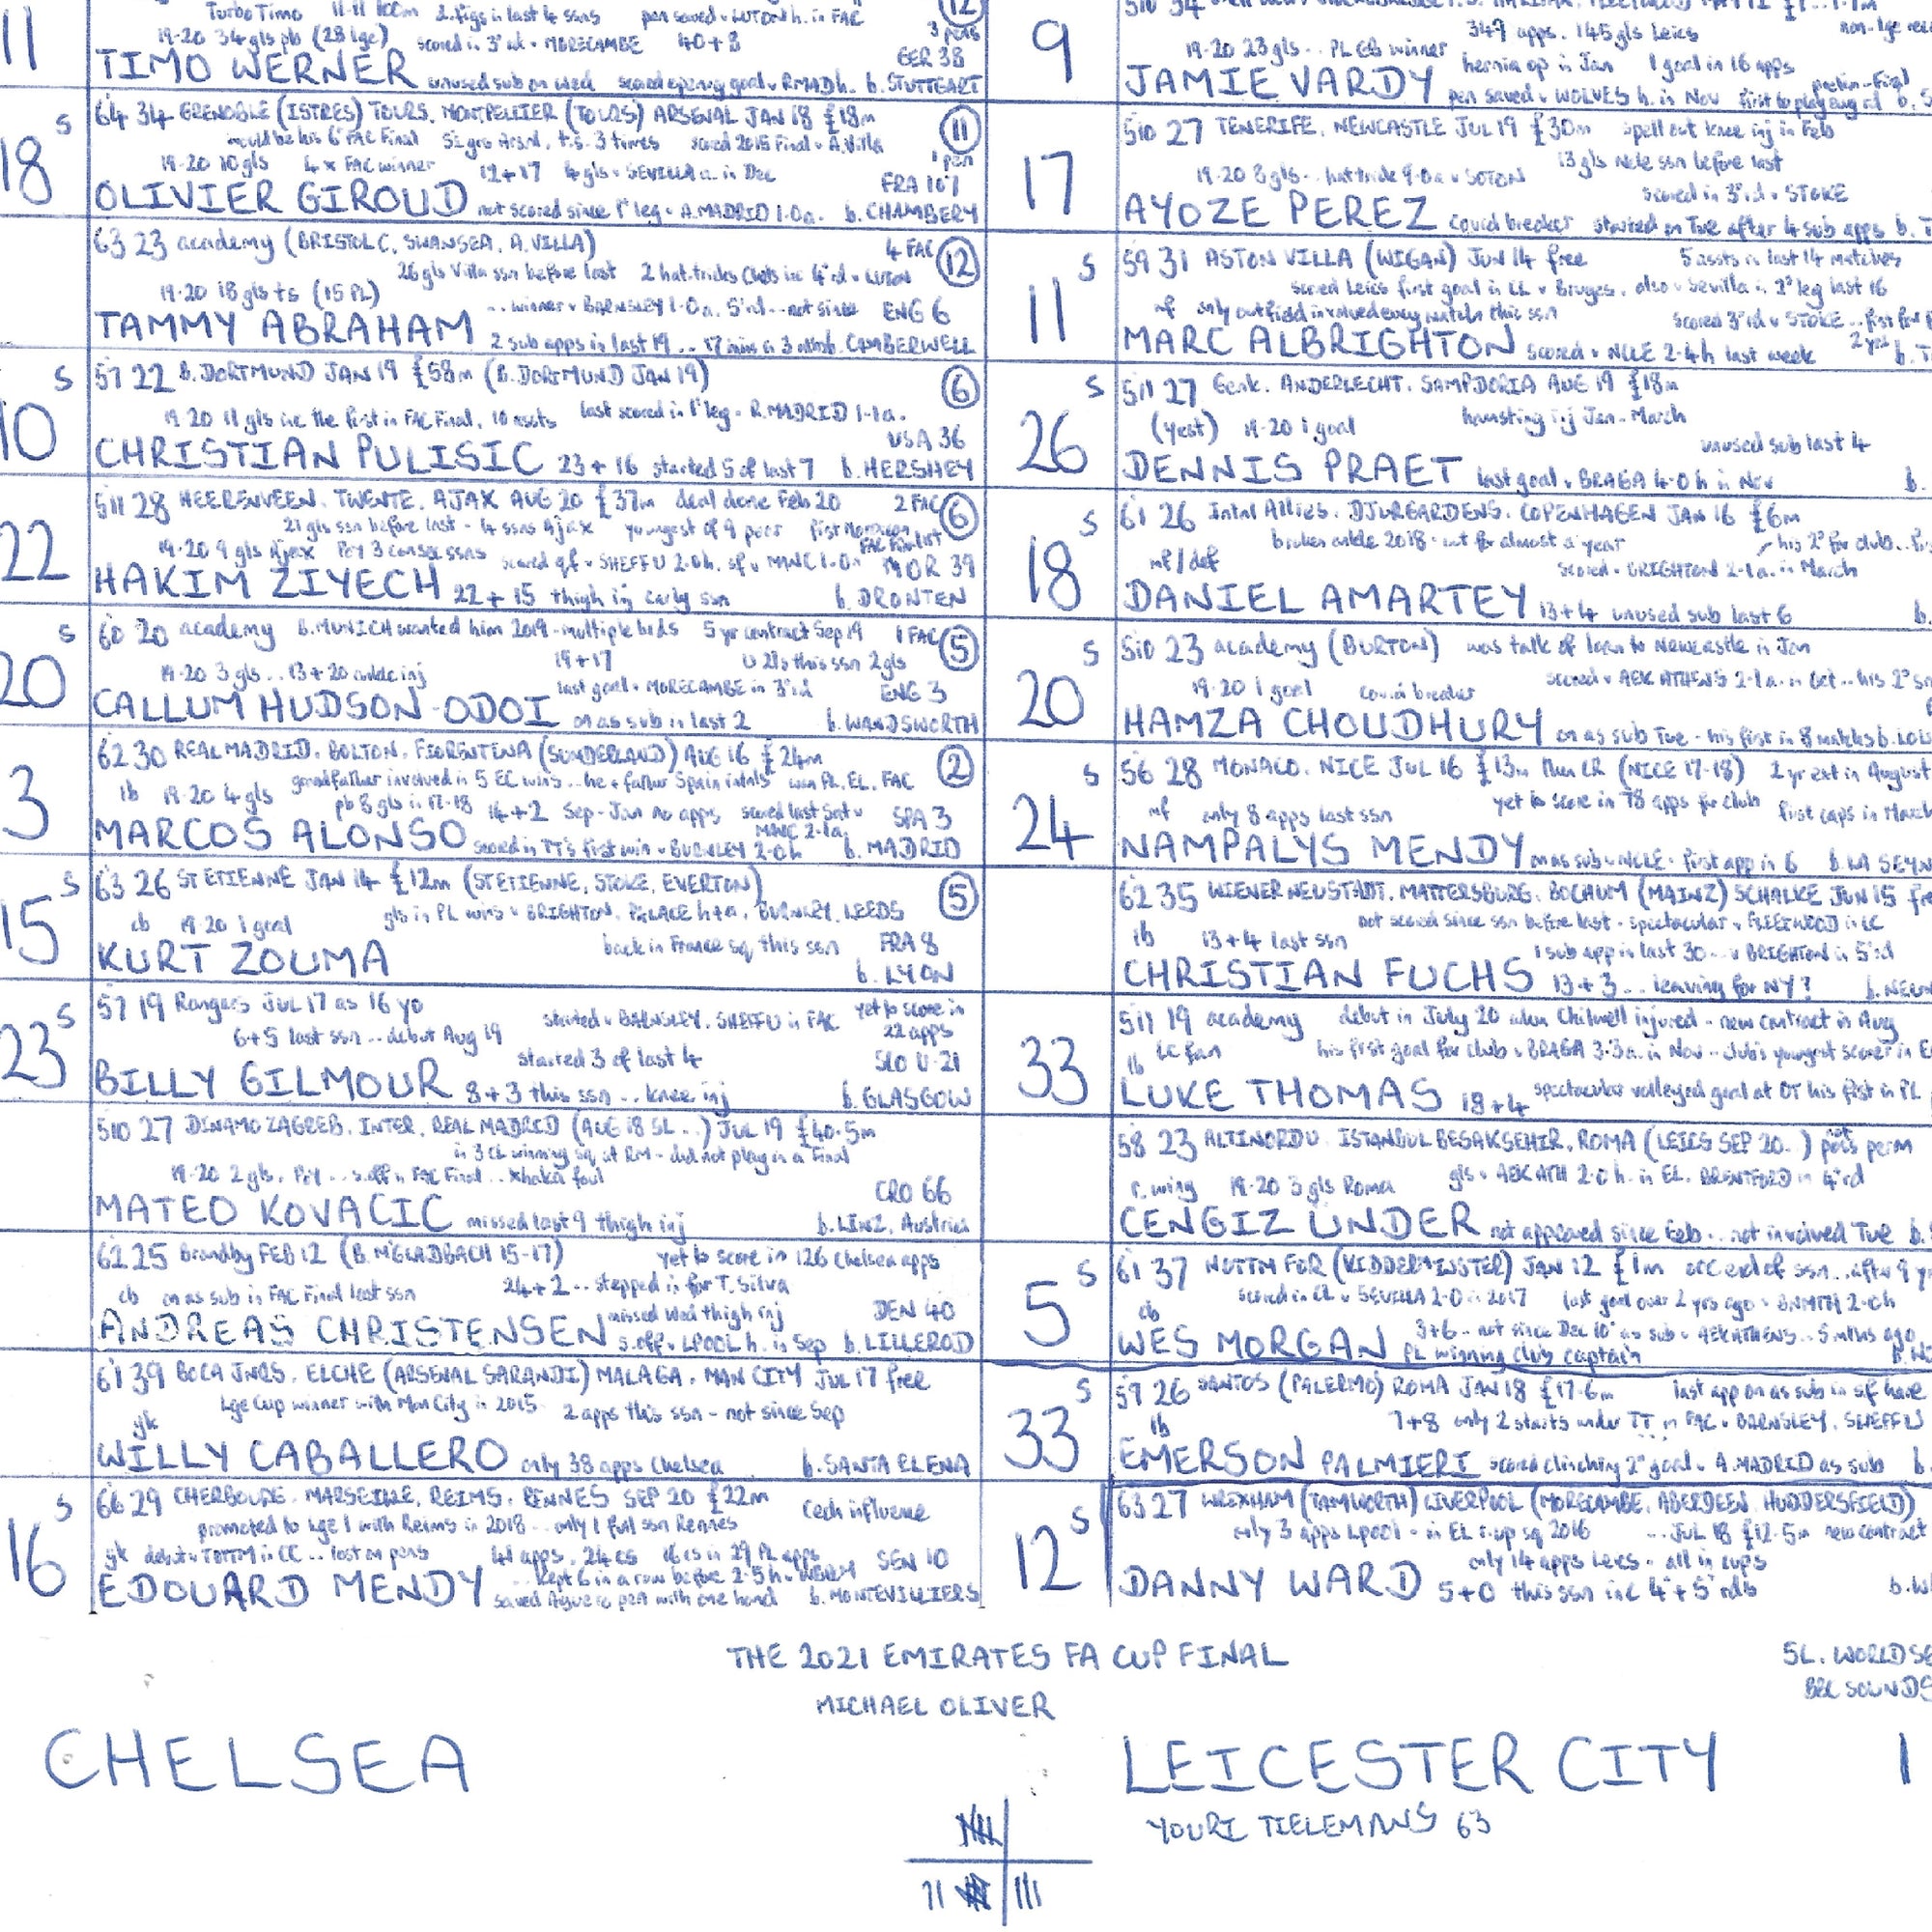 11
Turbo Timo 11-11 100m 2. figs in last 4 ssns pen saved v LUTON h. in FAC 12
19-20 34 gls pb (28 lge) scored in 3rd v MORECAMBE 40+8 3 pens
GER 38
TIMO WERNER unused sub on Wed scored opening goal v RMAD h. b. STUTTGART
18 S
64 34 GRENOBLE (ISTRES) TOURS, MONTPELLIER (TOURS) ARSENAL JAN 18 £18m 11
would be his 6th FAC Final scored 2015 Final v A.Villa 1 pen
19-20 10 gls 4 x FAC winner 12+17 4 gls v SEVILLA a. in Dec FRA 107
OLIVIER GIROUD not scored since 1st leg v A.MADRID 1.0a. b. CHAMBERY
63 23 academy (BRISTOL C, SWANSEA, A.VILLA) 4 FAC 12
26 gls Villa ssn before last 2 hat.tricks Chels inc 4th rd v LUTON
19-20 18 gls ts (15 PL) ... winner v BARNSLEY 1-0a. 5th rd...not since ENG 6
TAMMY ABRAHAM 2 sub apps in last 19 .. 17 mins in 3 mths b. CAMBERWELL
10 S
57 22 B.DORTMUND JAN 19 £58m (B.DORTMUND JAN 19) 6
19-20 11 gls inc the first in FAC Final, 10 assts last scored in 1st leg v R.MADRID 1-1a.
USA 36
CHRISTIAN PULISIC 23+16 started 5 of last 7 b. HERSHEY
22
511 28 HEERENVEEN, TWENTE, AJAX AUG 20 £37m deal done Feb 20 2 FAC 6
21 gls ssn before last - 4 ssns Ajax youngest of 9 first Moroccan FAC Finalist
19-20 9 gls Ajax PoY 3 consec ssns scored qf v SHEFFU 2.0h. sf v MANC 1.0n MOR 39
HAKIM ZIYECH 22+15 thigh inj early ssn b. DRONTEN
20 S
60 20 academy B.MUNICH wanted him 2019 - multiple bids 5 yr contract Sep 19 1 FAC 5
19+17 U 21s this ssn 2 gls
19-20 3 gls... 13+20 ankle inj last goal v MORECAMBE in 3rd ENG 3
CALLUM HUDSON-ODOI on as sub in last 2 b. WANDSWORTH
3
62 30 REAL MADRID, BOLTON, FIORENTINA (SUNDERLAND) AUG 16 £24m 2
grandfather involved in 5 EC wins... he + father Spain intnls won PL, EL, FAC
lb 19-20 4 gls pb 8 gls in 17-18 14+2 Sep-Jan no apps scored last Sat v MANC 2-1a. SPA 3
MARCOS ALONSO scored in TT's first win v BURNLEY 2.0h b. MADRID
15 S
63 26 ST ETIENNE JAN 14 £12m (ST ETIENNE, STOKE, EVERTON) 5
cb 19-20 1 goal gls in PL wins v BRIGHTON, PALACE h+a, BURNLEY, LEEDS
back in France sq this ssn FRA 8
KURT ZOUMA b. LYON
23 S
57 19 Rangers JUL 17 as 16 yo yet to score in 22 apps
6+5 last ssn... debut Aug 19 started v BARNSLEY, SHEFFU in FAC
started 3 of last 4 SCO U-21
BILLY GILMOUR 8+3 this ssn .. knee inj b. GLASGOW
510 27 DINAMO ZAGREB, INTER, REAL MADRID (AUG 18 SL..) JUL 19 £40.5m
in 3 CL winning sq at RM - did not play in a final
19-20 2 gls, PoY ... s.off v FAC Final.. Xhaka foul CRO 66
MATEO KOVACIC missed last 9 thigh inj b. LINZ, Austria
62 25 Brondby FEB 12 (B. M'GLADBACH 15-17) yet to score in 126 Chelsea apps
cb on as sub in FAC Final last ssn 24+2 .. stepped in for T. Silva
missed Wed thigh inj DEN 40
ANDREAS CHRISTENSEN s.off v LPOOL h. in Sep b. LILLEROD
61 39 BOCA JNRS, ELCHE (ARSENAL SARANDI) MALAGA, MAN CITY JUL 17 free
gk Lge Cup winner with Man City in 2015 2 apps this ssn - not since Sep
WILLY CABALLERO only 38 apps Chelsea b. SANTA ELENA
16 S
66 29 CHERBOURG, MARSEILLE, REIMS, RENNES SEP 20 £22m Cech influence
promoted to Lge 1 with Reims in 2018 ... only 1 full ssn Rennes
gk debut v TOTTM in CC... lost on pens 41 apps, 24 cs 16 cs in 29 PL apps SEN 10
kept 6 in a row before 2-5h v WBROM
EDOUARD MENDY saved Aguero pen with one hand b. MONTEVILLIERS
9
349 apps, 145 gls Leics
19-20 23 gls.. PL GB winner hernia op in Jan 1 goal in 16 apps
JAMIE VARDY pen saved v WOLVES h. in Nov
17
510 27 TENERIFE, NEWCASTLE JUL 19 £30m spell out knee inj in Feb
13 gls Ncle ssn before last
19-20 8 gls... hat.trick 9.0a v SOTON scored in 3rd v STOKE
AYOZE PEREZ covid breaker started on Tue after 4 sub apps b.
11 S
59 31 ASTON VILLA (WIGAN) JUN 14 free 5 assts in last 14 matches
scored Leics first goal in CL v Bruges, also v Sevilla in 2nd leg last 16
mf only outfield involved every match this ssn scored 3rd v STOKE
MARC ALBRIGHTON scored v NCLE 2-4h last week
26 S
511 27 Genk, ANDERLECHT, SAMPDORIA AUG 19 £18m
(yest) 19-20 1 goal hamstring inj Jan-March
unused sub last 4
DENNIS PRAET last goal v BRAGA 4-0h in Nov b.
18 S
61 26 Intnl Allies, DJURGARDENS, COPENHAGEN JAN 16 £6m
broken ankle 2018 - out for almost a year his 2nd for club
mf/def scored v BRIGHTON 2-1a. in March
DANIEL AMARTEY 13+4 unused sub last 6 b.
20 S
510 23 academy (BURTON) was talk of loan to Newcastle in Jan
19-20 1 goal covid breaker scored v AEK ATHENS 2-1a. in Oct.. his 2nd
HAMZA CHOUDHURY on as sub Tue - his first in 8 matches
24 S
56 28 MONACO, NICE JUL 16 £13m then CR (NICE 17-18) 2 yr ext in August
mf only 8 apps last ssn yet to score in 78 apps for club first caps in March
NAMPALYS MENDY on as sub v NCLE - first app in 6 b. LA SEYN
62 35 WIENER NEUSTADT, MATTERSBURG, BOCHUM (MAINZ) SCHALKE JUN 15 fre
not scored since ssn before last - spectacular v FLEETWOOD in LC
lb 13+4 last ssn 1 sub app in last 30... v BRIGHTON in 5th rd
CHRISTIAN FUCHS 13+3 ... leaving for NY? b. NEUN
33
511 19 academy debut in July 20 when Chilwell injured - new contract in Aug
lb LC fan his first goal for club v BRAGA 3-3a. in Nov - club's youngest scorer in E
LUKE THOMAS 18+4 spectacular volleyed goal at OT his first in PL
58 23 ALTINORDU, ISTANBUL BESAKSEHIR, ROMA (LEICS SEP 20..) poss perm
r. wing 19-20 3 gls Roma gls v AEK ATH 2.0h. in EL, BRENTFORD in 4th rd
CENGIZ UNDER not appeared since Feb... not involved Tue b.
5 S
61 37 NOTTM FOR (KIDDERMINSTER) JAN 12 £1m
cb scored in CL v SEVILLA 2-0 in 2017 last goal over 2 yrs ago v BNMTH 2-0h
3+6 - not since Dec 10th as sub v AEK ATHENS.. 5 mths ago
WES MORGAN PL winning club captain
33 S
59 26 SANTOS (PALERMO) ROMA JAN 18 £17.6m last app on as sub in sf here
lb 7+8 only 2 starts under TT in FAC v BARNSLEY, SHEFFU
EMERSON PALMIERI scored clinching 2nd goal v A.MADRID as sub b.
12 S
63 27 WREXHAM (TAMWORTH) LIVERPOOL (MORECAMBE, ABERDEEN, HUDDERSFIELD)
only 3 apps Lpool - in EL r.up sq 2016 ... JUL 18 £12.5m new contract
only 14 apps Leics - all in cups
DANNY WARD 5+0 this ssn inc 4th+5th rds
THE 2021 EMIRATES FA CUP FINAL
MICHAEL OLIVER
5L. WORLDSE
BBC SOUNDS
CHELSEA
LEICESTER CITY 1
YOURI TIELEMANS 63